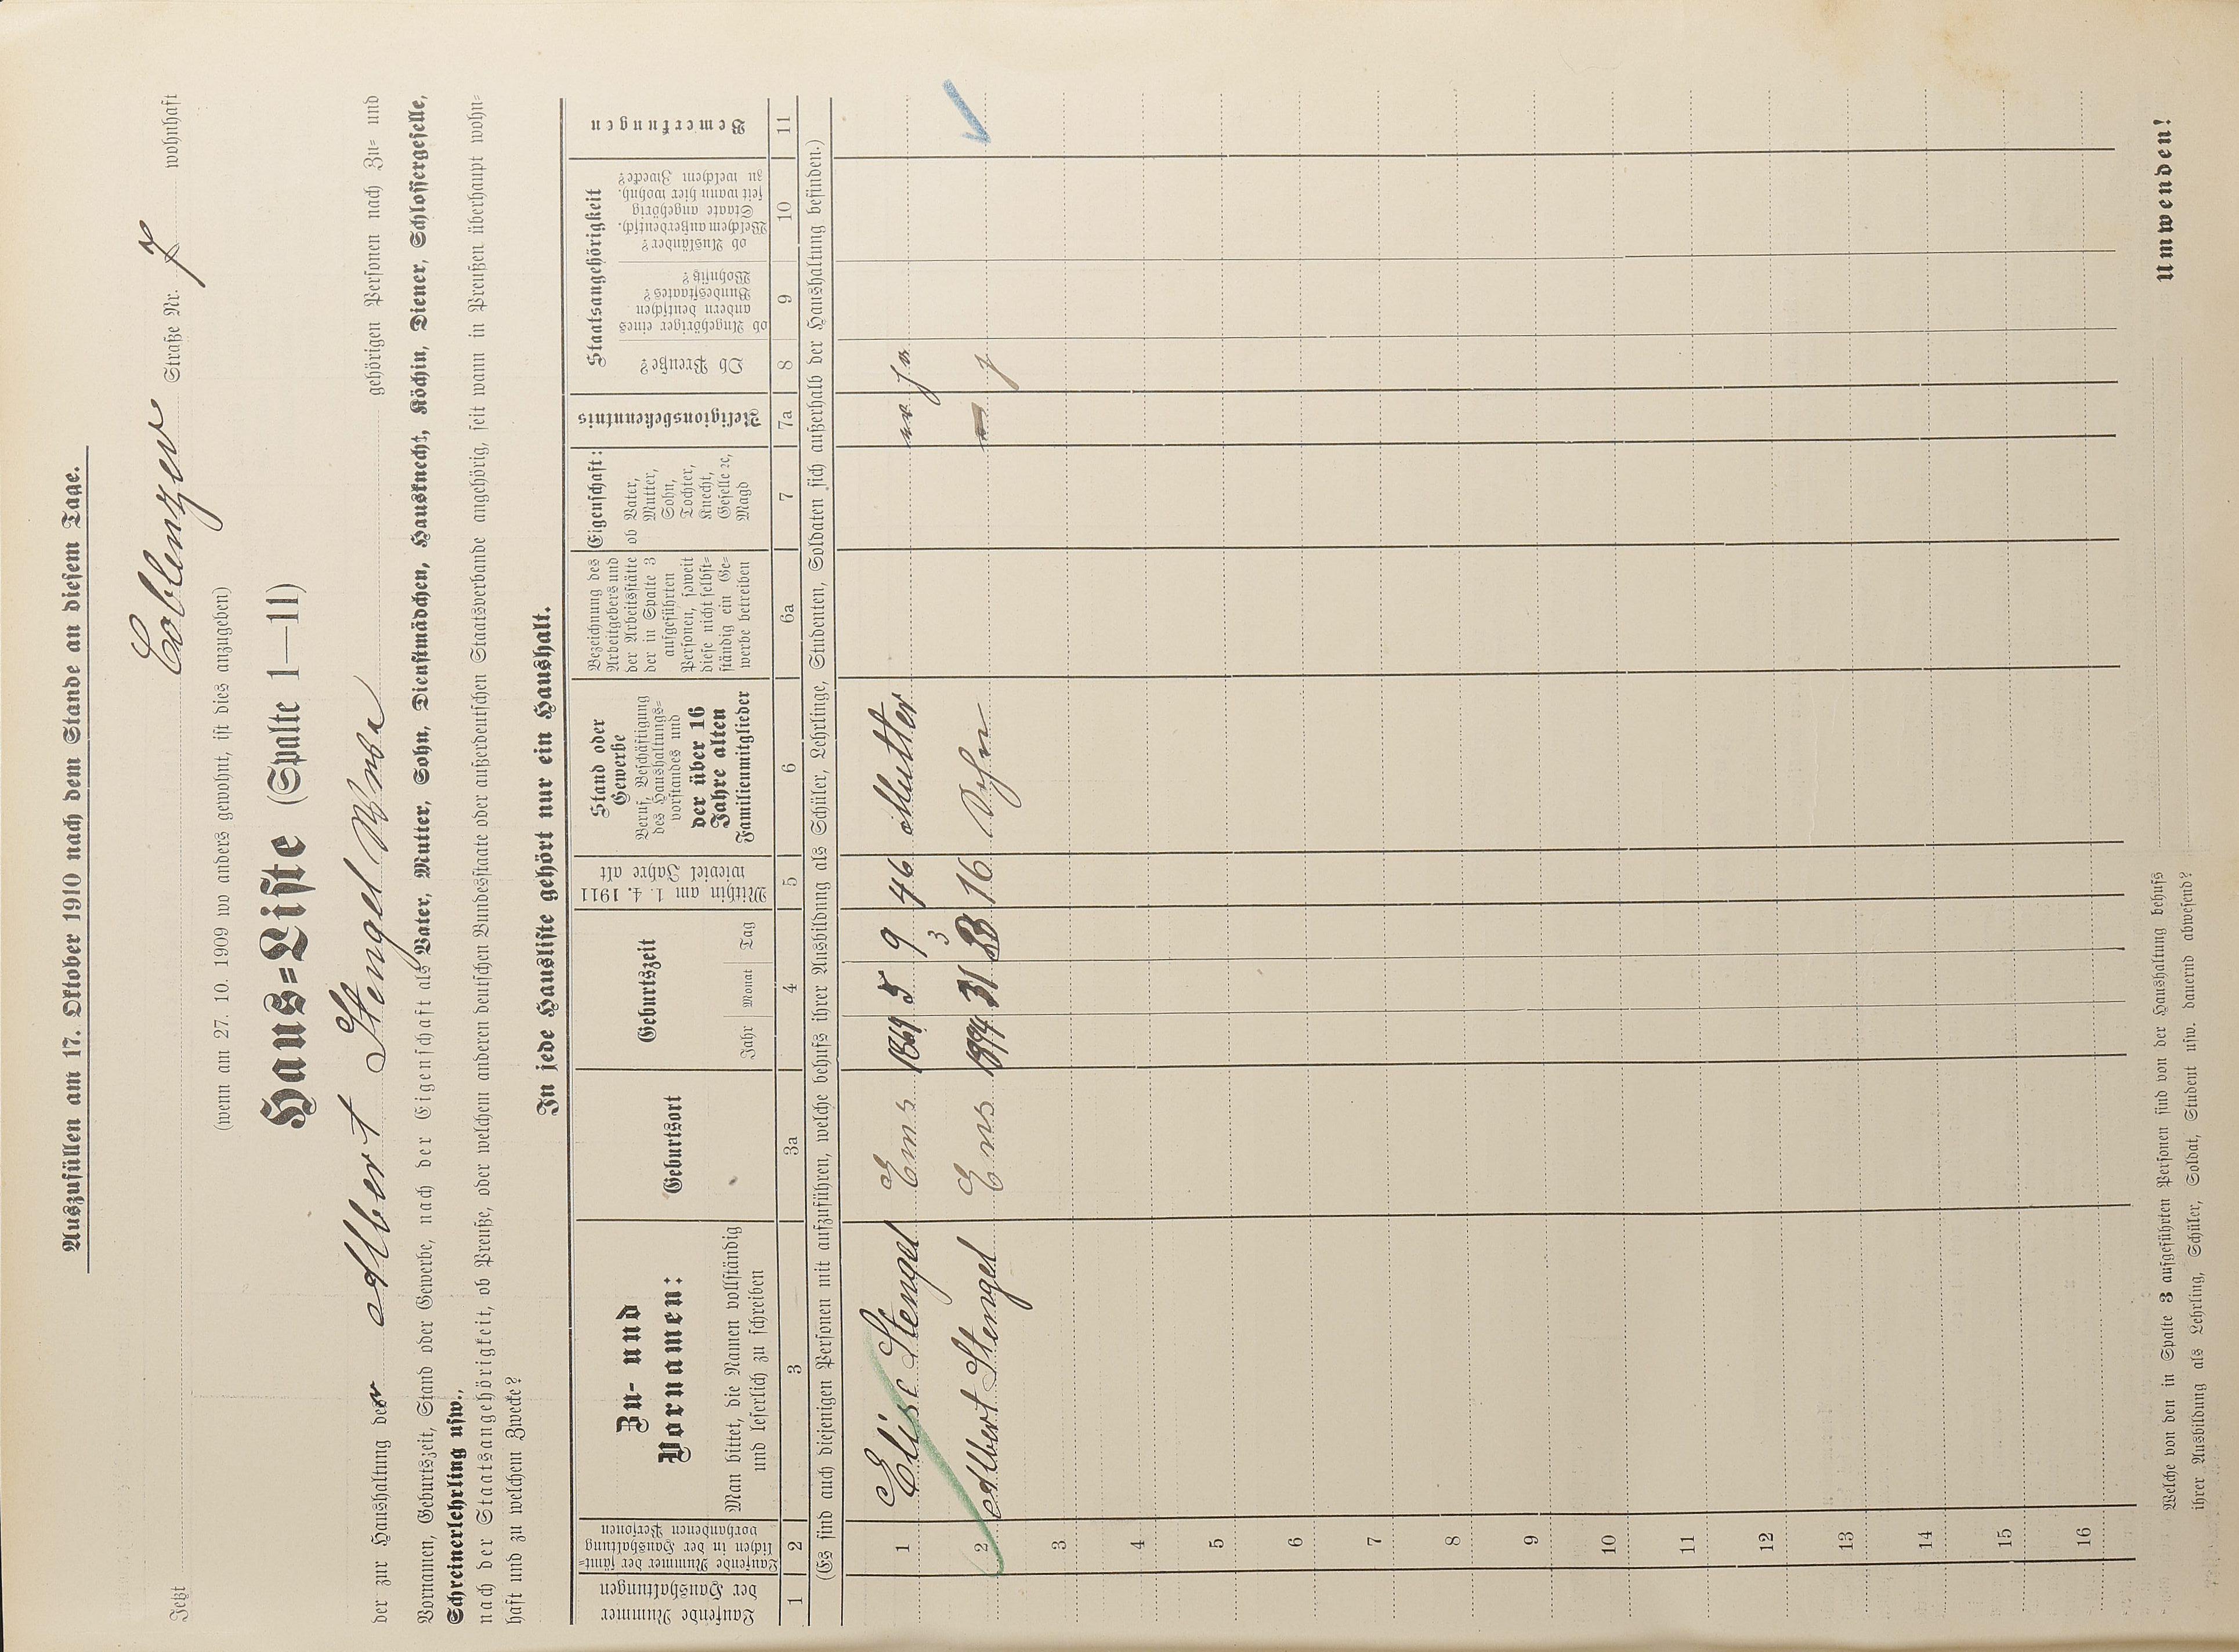 Auszufüllen am 17. Oktober 1910 nach dem Stande an diesem Tage.
Jetzt Coblenzer Straße Nr. 7 wohnhaft
(wenn am 27. 10. 1909 wo anders gewohnt, ist dies anzugeben)
Haus=Liste (Spalte 1—11)
der zur Haushaltung der Albert Stengel Wwe gehörigen Personen nach Zu= und
Vornamen, Geburtszeit, Stand oder Gewerbe, nach der Eigenschaft als Vater, Mutter, Sohn, Dienstmädchen, Hausknecht, Köchin, Diener, Schlossergeselle,
Schreinerlehrling usw.,
nach der Staatsangehörigkeit, ob Preuße, oder welchem anderen deutschen Bundesstaate oder außerdeutschen Staatsverbande angehörig, seit wann in Preußen überhaupt wohn=
haft und zu welchem Zwecke?
In jede Hausliste gehört nur ein Haushalt.
Laufende Nummer
der Haushaltungen
Laufende Nummer der sämt=
lichen in der Haushaltung
vorhandenen Personen
Zu- und
Vornamen:
Man bittet, die Namen vollständig
und leserlich zu schreiben
Geburtsort
Geburtszeit
Jahr Monat Tag
Mithin am 1. 4. 1911
wieviel Jahre alt
Stand oder
Gewerbe
Beruf, Beschäftigung
des Haushaltungs=
vorstandes und
der über 16
Jahre alten
Familienmitglieder
Bezeichnung des
Arbeitgebers und
der Arbeitsstätte
der in Spalte 3
aufgeführten
Personen, soweit
diese nicht selbst=
ständig ein Ge=
werbe betreiben
Eigenschaft:
ob Vater,
Mutter,
Sohn,
Tochter,
Knecht,
Geselle ꝛc,
Magd
Religionsbekenntnis
Staatsangehörigkeit
Ob Preuße?
ob Angehöriger eines
andern deutschen
Bundesstaates?
Wohnsitz?
ob Ausländer?
Welchem außerdeutsch.
Staate angehörig
seit wann hier wohnh.
zu welchem Zwecke?
Bemerkungen
1 2 3 3a 4 5 6 6a 7 7a 8 9 10 11
(Es sind auch diejenigen Personen mit aufzuführen, welche behufs ihrer Ausbildung als Schüler, Lehrlinge, Studenten, Soldaten sich außerhalb der Haushaltung befinden.)
1 Elise Stengel Ems 5 9 46 Mutter ja
2 Albert Stengel Ems 1894 3 16 Sohn
3
4
5
6
7
8
9
10
11
12
13
14
15
16
Welche von den in Spalte 3 aufgeführten Personen sind von der Haushaltung behufs
ihrer Ausbildung als Lehrling, Schüler, Soldat, Student usw. dauernd abwesend?
Umwenden!